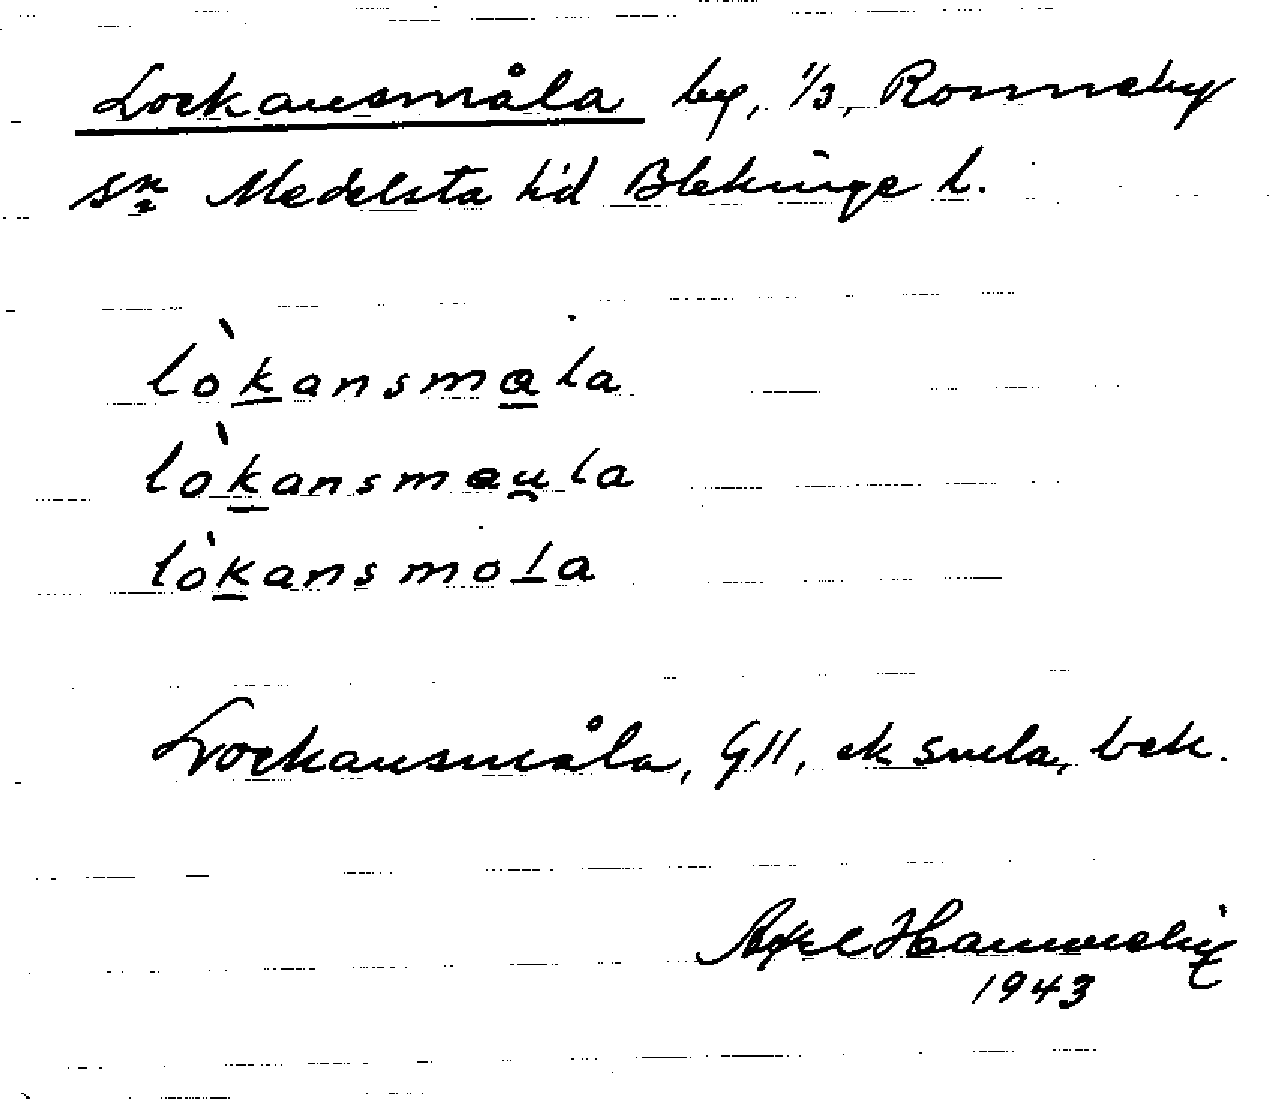 Lockansmåla by, 1/3, Ronneby
sn Medelsta hd Blekinge l.
lòkansmala
lòkansmaula
lòkansmola
Lockansmåla, GII, ek smla, bek.
Axel
1943